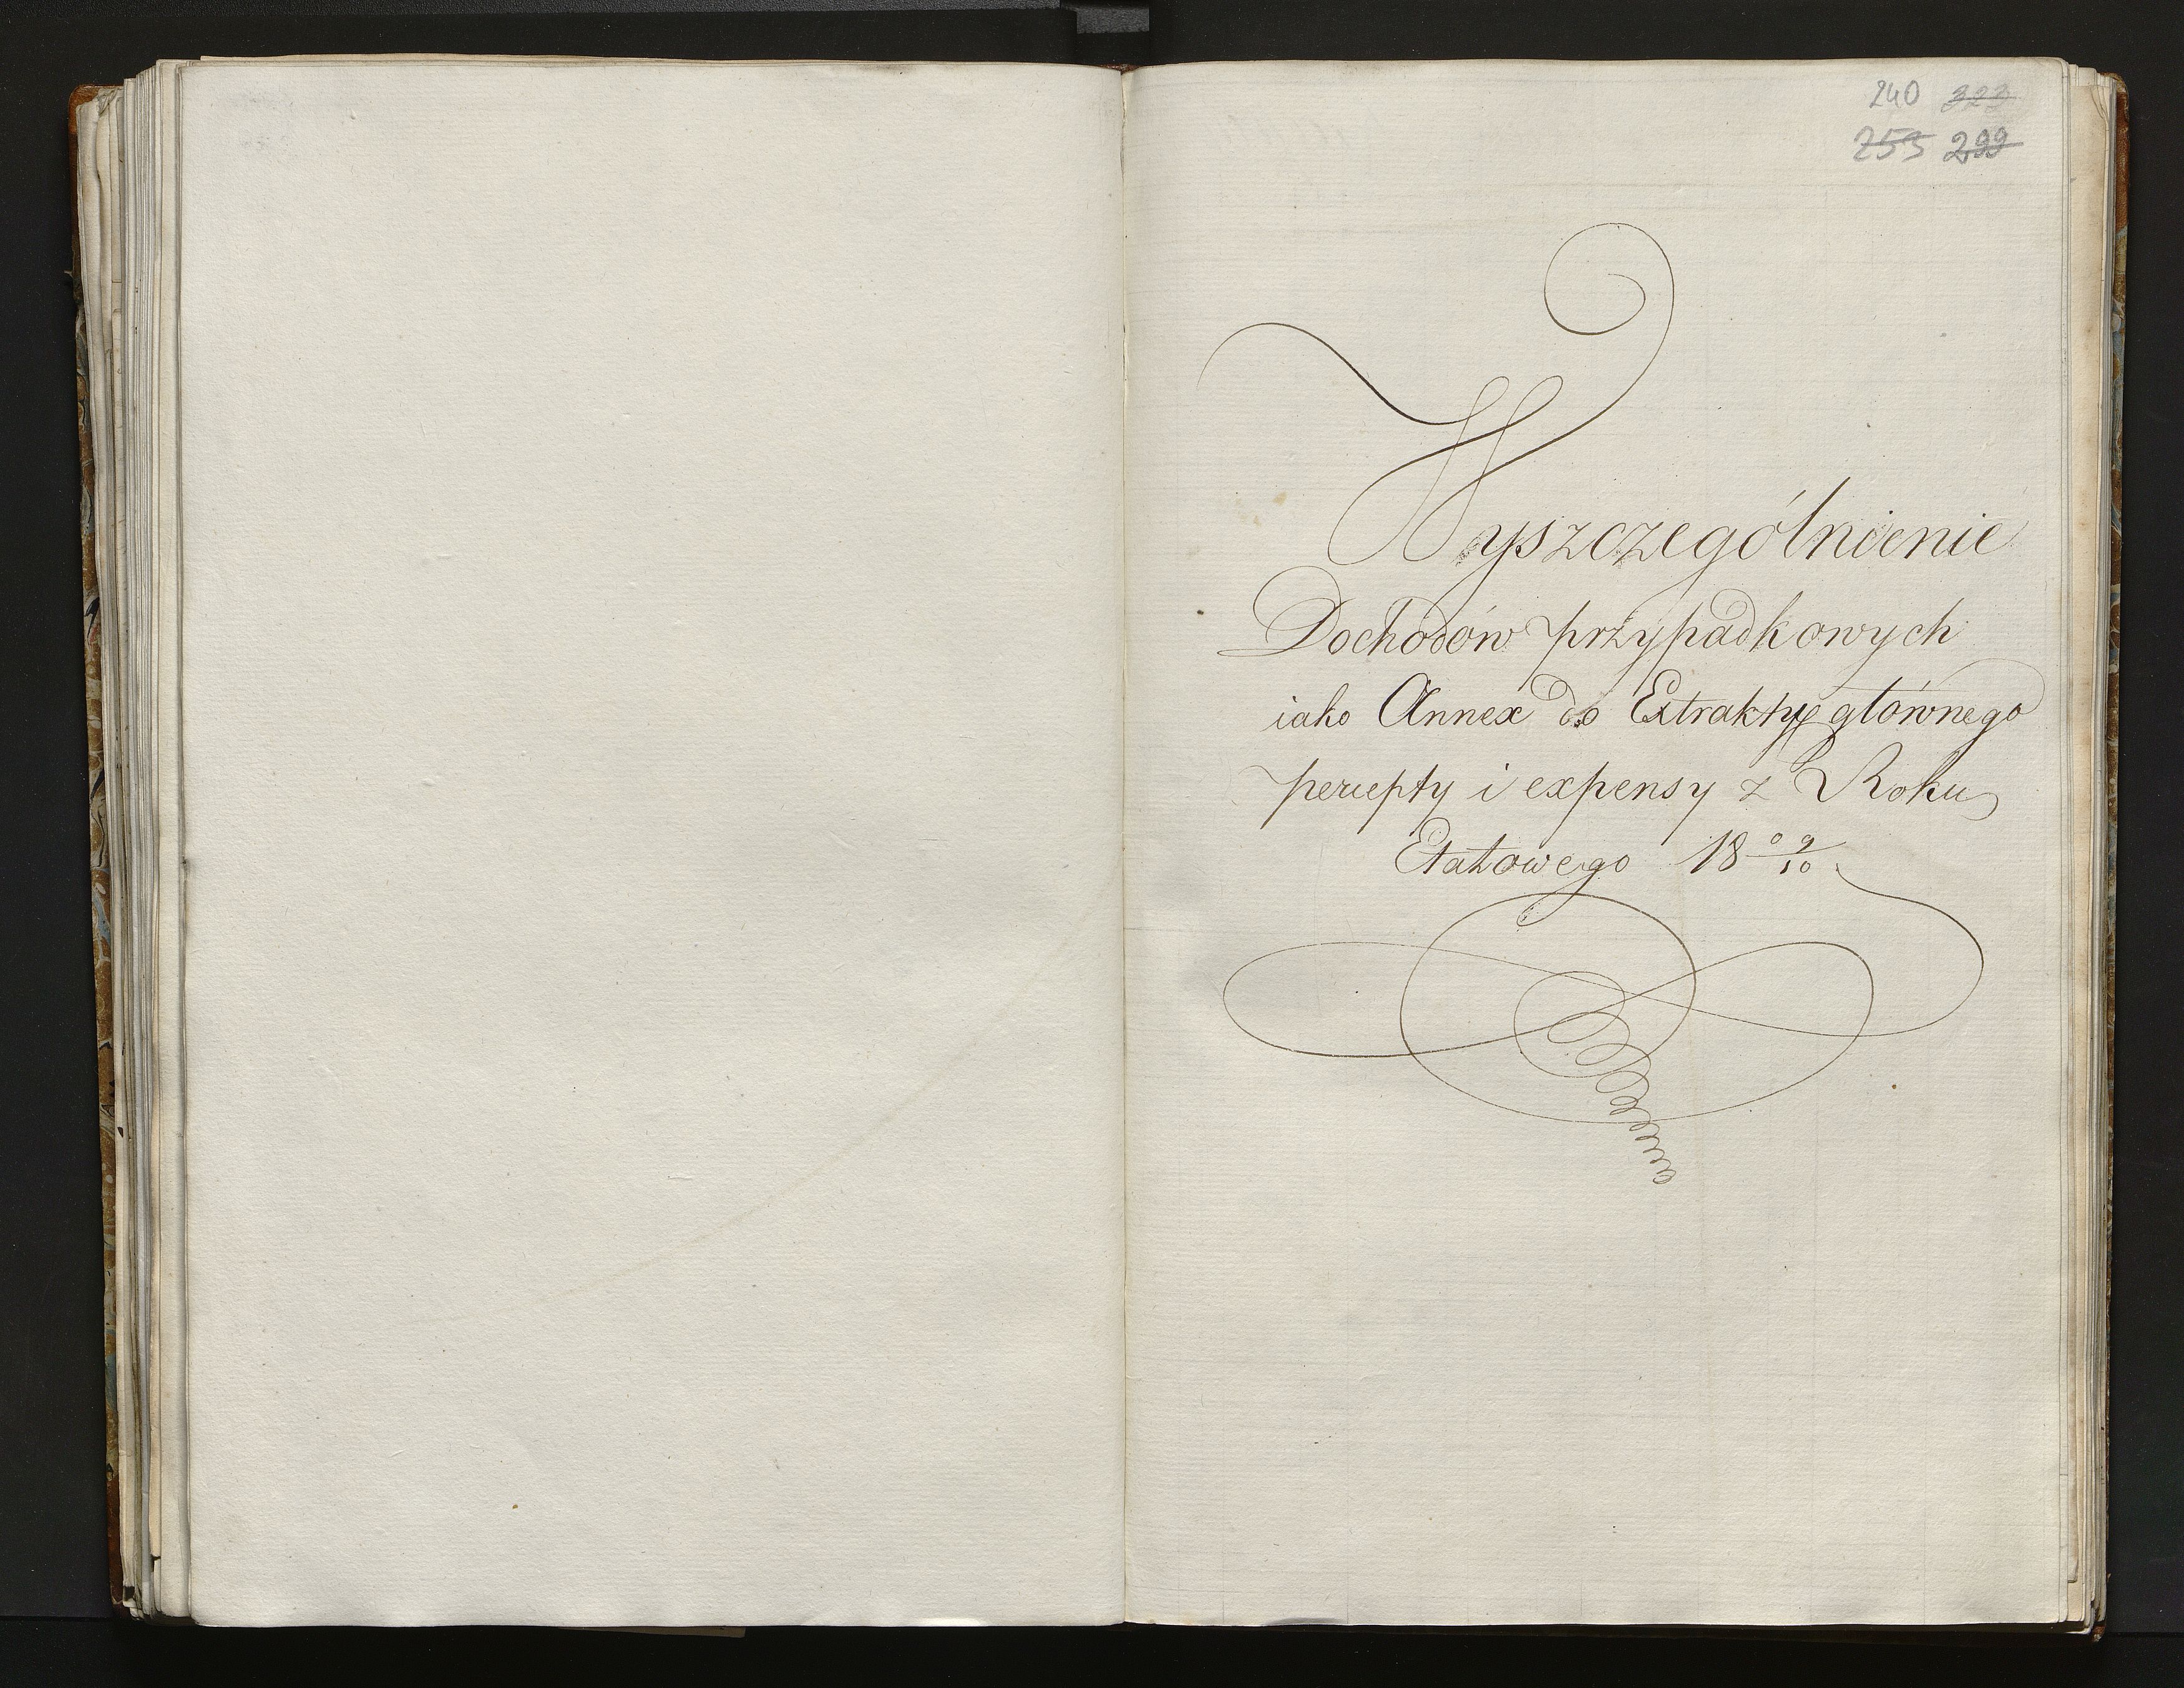 240 323
255 299
Wyszczególnienie
Dochodów przypadkowych
iako Annex do Extraktu głównego
percepty i expensy z Roku
Etatowego 18 09/10